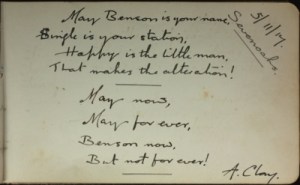 May Benson is your name
Single is your station,
Happy is the little man,
That makes the alteration!
May now,
May for ever,
Benson now.
But not for ever!
A. Clay.
5/11/17.
Sevenoaks.